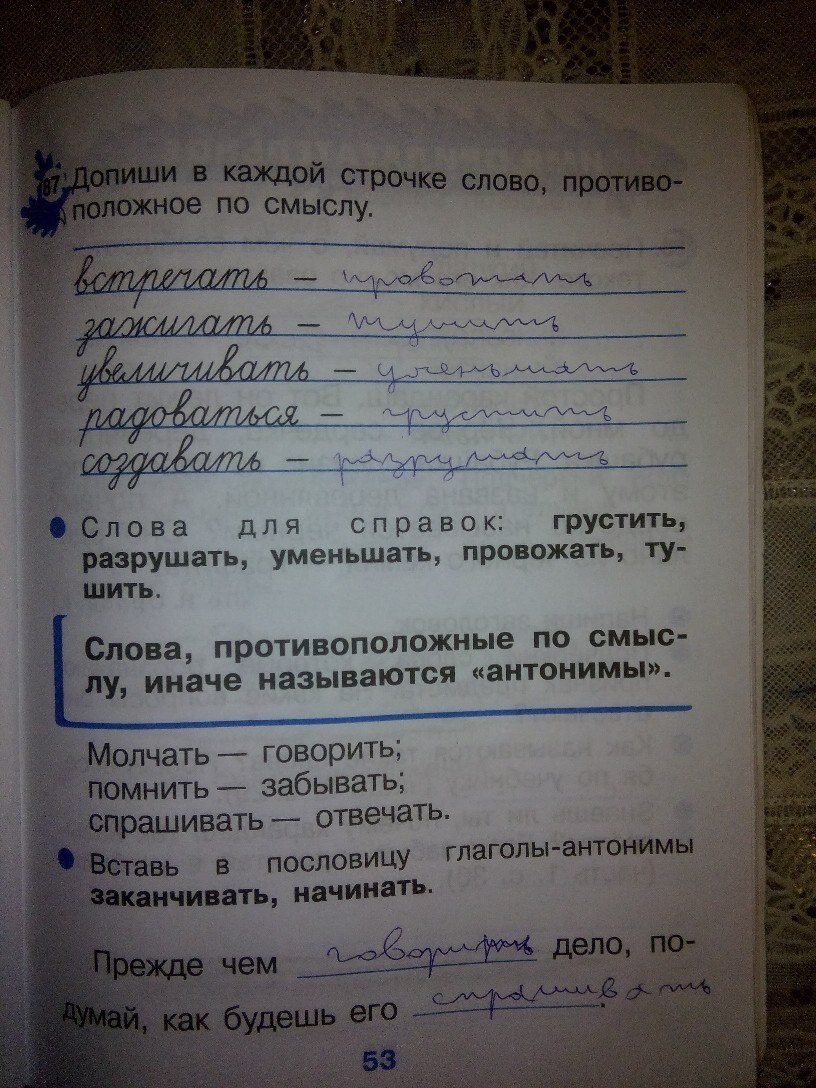 87. Допиши в каждой строчке слово, противо-
положное по смыслу.
встречать – провожать
зажигать – тушить
увеличивать – уменьшать
радоваться – грустить
создавать – разрушать
Слова для справок: грустить,
разрушать, уменьшать, провожать, ту-
шить.
Слова, противоположные по смыс-
лу, иначе называются «антонимы».
Молчать — говорить;
помнить — забывать;
спрашивать — отвечать.
Вставь в пословицу глаголы-антонимы
заканчивать, начинать.
Прежде чем говорить дело, по-
думай, как будешь его спрашивать
53